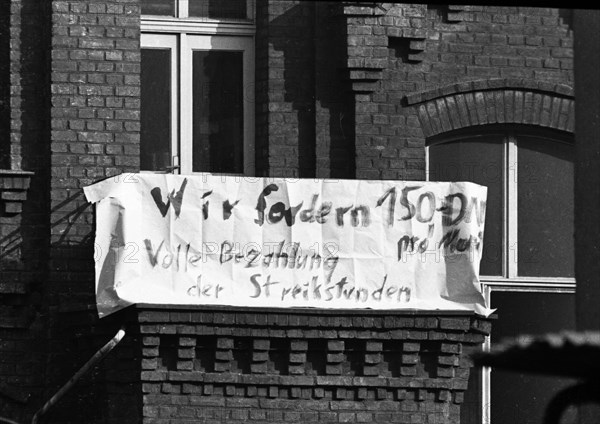 Wir fordern 150-DM
pro Mann
Volle Bezahlung
der Streikstunden